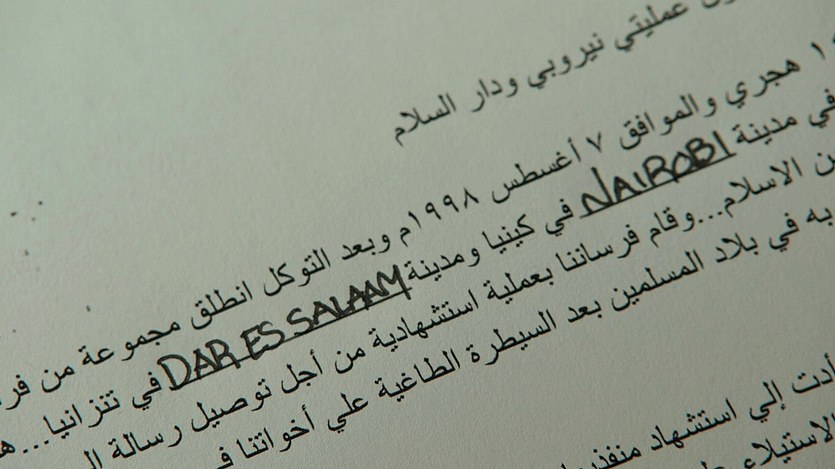 عمليتي نيروبي ودار السلام
هجري والموافق ٧ أغسطس ١٩٩٨م وبعد التوكل انطلق مجموعة من
في مدينة NAIROBI في كينيا ومدينة DAR ES SALAAM في تنزانيا...
الاسلام...وقام فرساننا بعملية استشهادية من أجل توصيل رسالة
به في بلاد المسلمين بعد السيطرة الطاغية علي أخواتنا
أدت إلي استشهاد
الاستيلاء